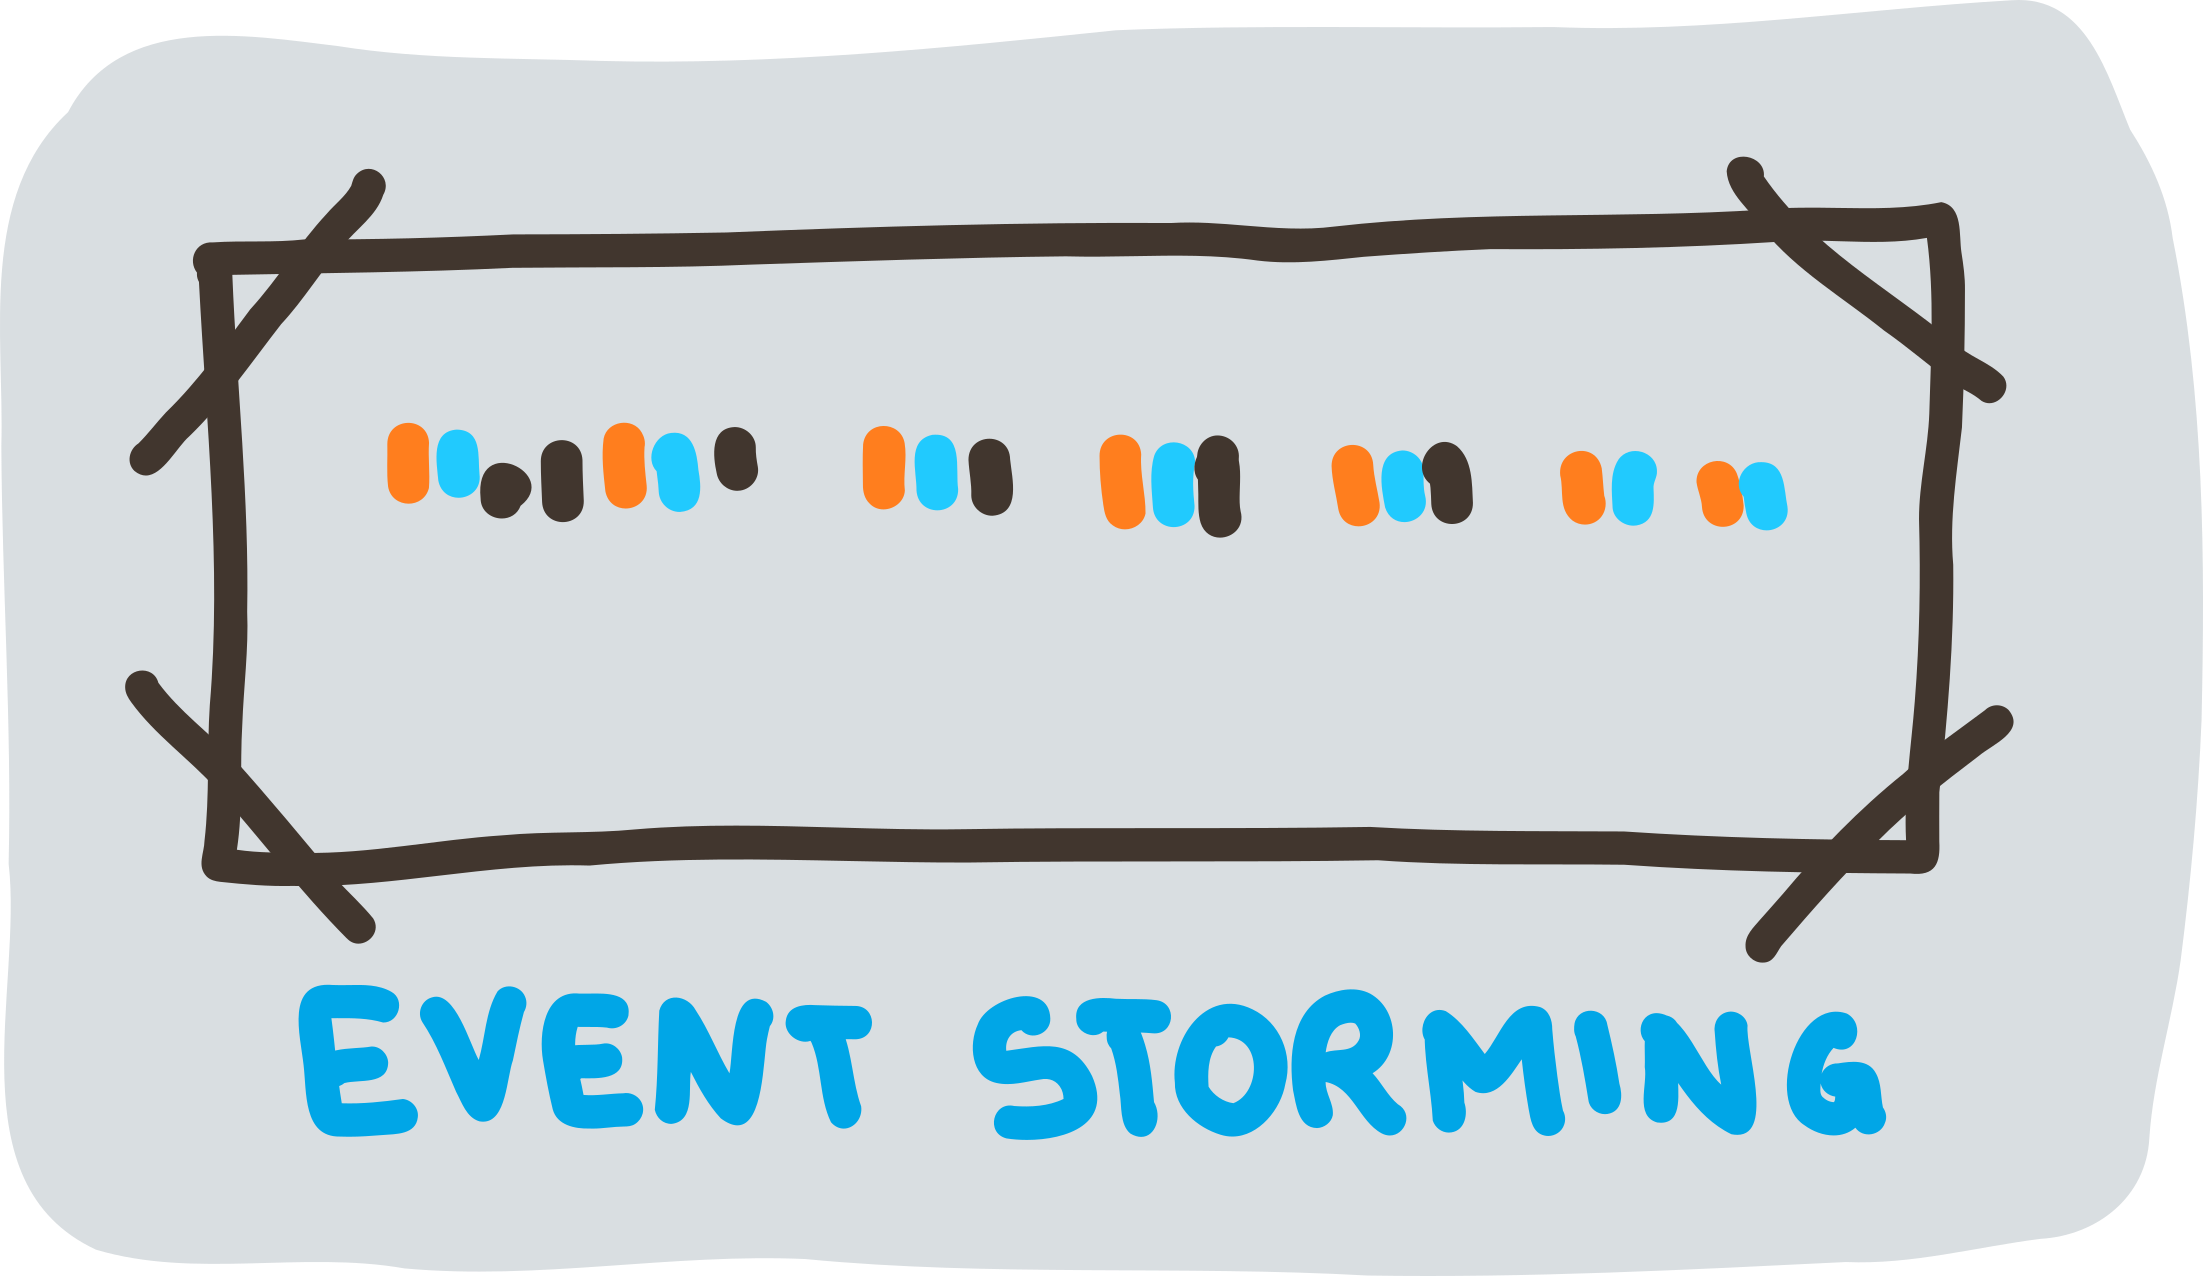 EVENT STORMING